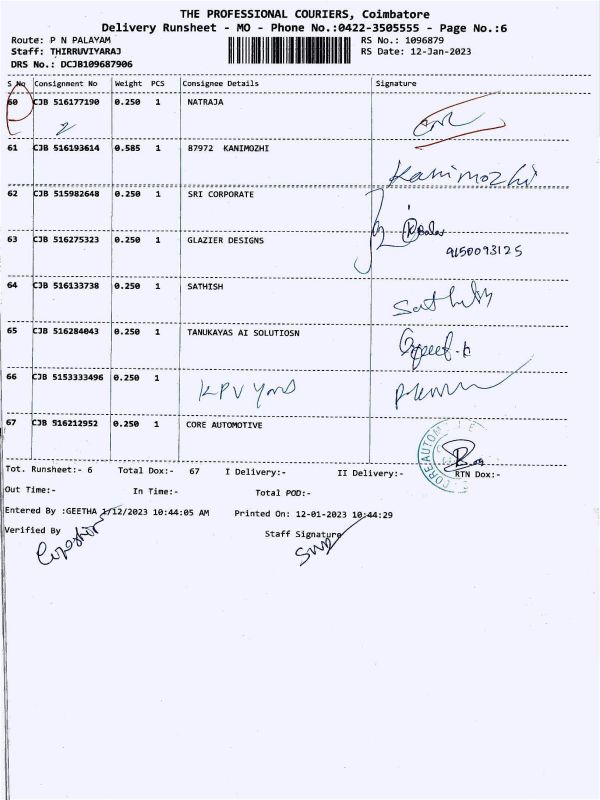 THE PROFESSIONAL COURIERS, Coimbatore
Delivery Runsheet - MO - Phone No.:0422-3505555 - Page No.:6
Route: P N PALAYAM RS No.: 1096879
Staff: THIRRUVIYARAJ RS Date: 12-Jan-2023
DRS No.: DCJB109687906
S No Consignment No Weight PCS Consignee Details Signature
60 CJB 516177190 0.250 1 NATRAJA
61 CJB 516193614 0.585 1 87972 KANIMOZHI
Kanimozhi
62 CJB 515982648 0.250 1 SRI CORPORATE
63 CJB 516275323 0.250 1 GLAZIER DESIGNS
9150093125
64 CJB 516133738 0.250 1 SATHISH
Sathish
65 CJB 516284043 0.250 1 TANUKAYAS AI SOLUTIOSN
66 CJB 5153333496 0.250 1
67 CJB 516212952 0.250 1 CORE AUTOMOTIVE
Tot. Runsheet:- 6 Total Dox:- 67 I Delivery:- II Delivery:- RTN Dox:-
Out Time:- In Time:- Total POD:-
Entered By :GEETHA 1/12/2023 10:44:05 AM Printed On: 12-01-2023 10:44:29
Verified By Staff Signature